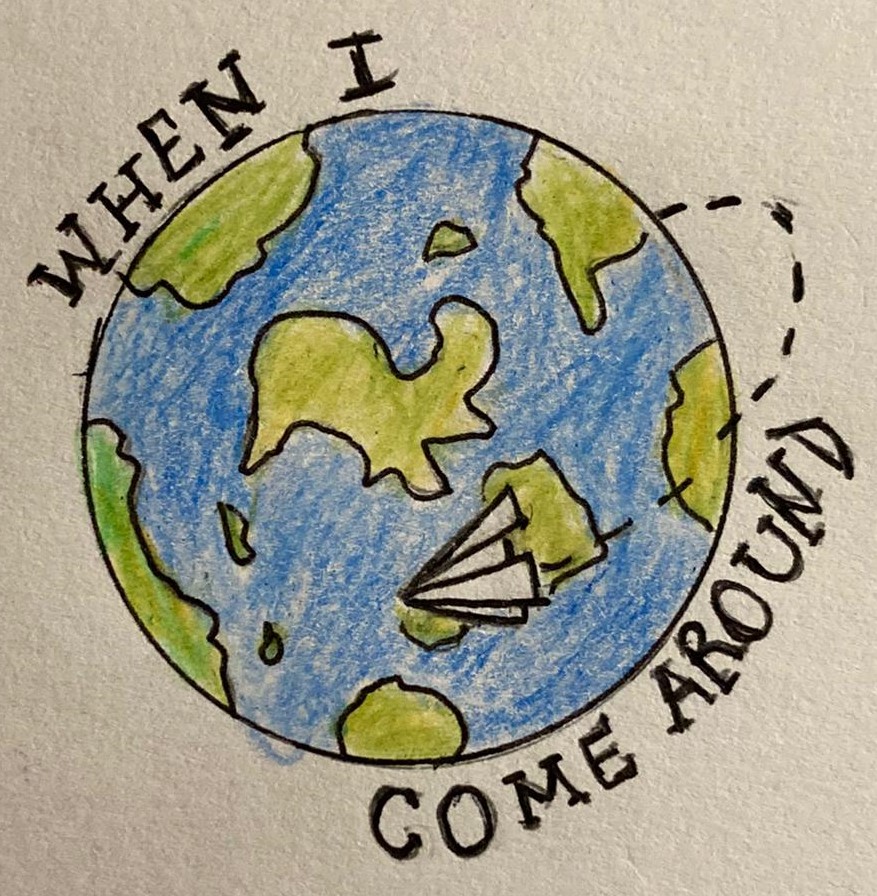 WHEN I
COME AROUND